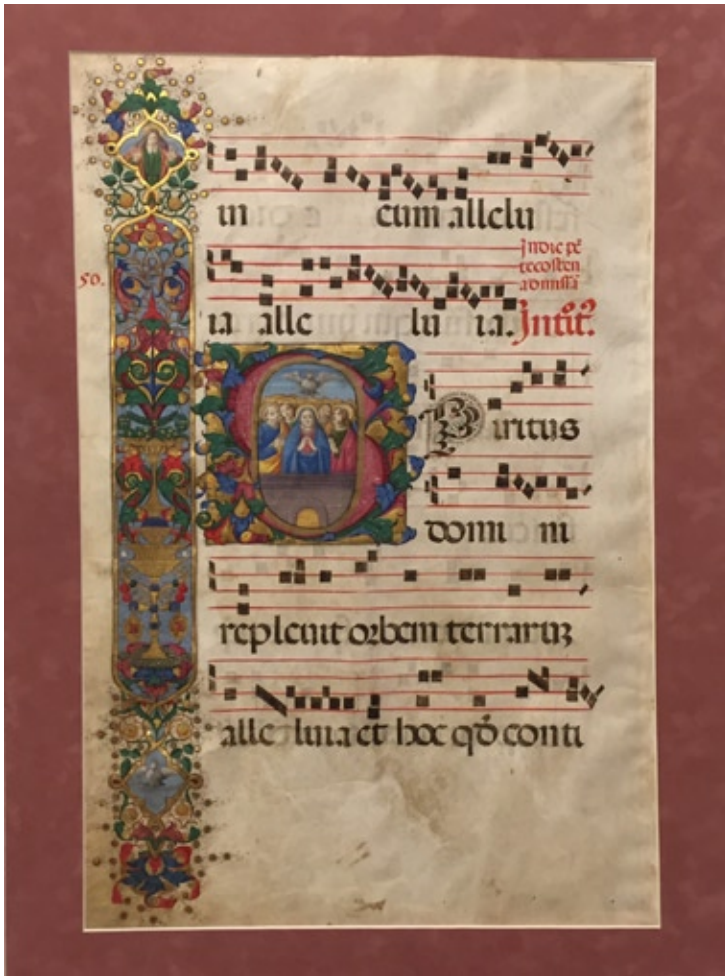 in cum allelu
In die pē
tecosten
ad missā
50.
ia alle lu ia. Introit?
Spiritus
domi ni
repleuit orbem terraruꝫ
alle luia et hoc qđ conti